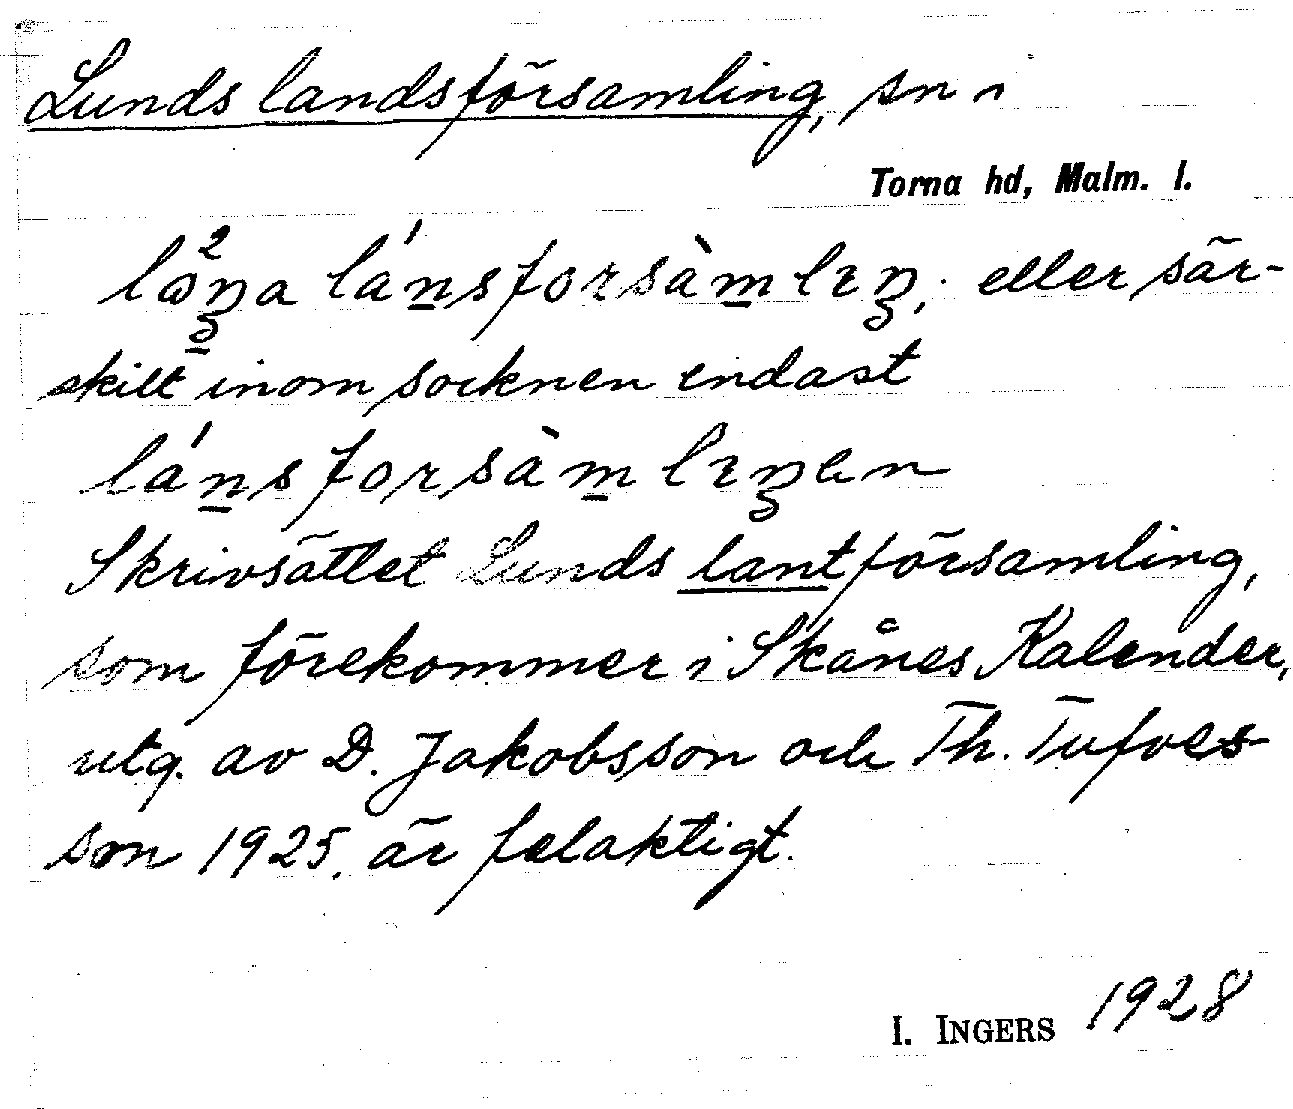 Lunds landsförsamling, sn i
Torna hd, Malm. l.
eller sär-
skilt inom socknen endast
Skrivsättet Lunds lantförsamling,
som förekommer i Skånes Kalender,
utg. av D. Jakobsson och Th. Tufves
son 1925, är felaktigt.
I. INGERS 1928